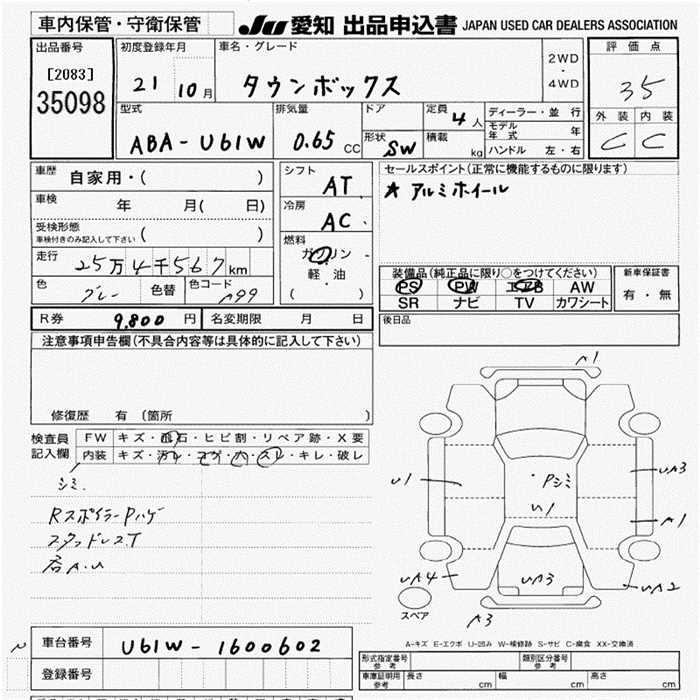 車内保管・守衛保管 JU 愛知 出品申込書 JAPAN USED CAR DEALERS ASSOCIATION
出品番号 初度登録年月 車名・グレード 評価点
[2083] 21 10月 タウンボックス 2WD・4WD 35
35098
型式 排気量 ドア 定員 4人 ディーラー・並行 外装 内装
ABA-U61W 0.65 CC 形状 SW 積載 kg モデル年式 年 C C
ハンドル 左・右
車歴 自家用・( ) シフト AT セールスポイント(正常に機能するものに限ります)
車検 年 月( 日) 冷房 AC ★アルミホイール
受検形態 車検付きのみ記入して下さい ( ) 燃料 ガソリン・軽油 ( )
走行 25万4千567km 装備品(純正品に限り○をつけてください) 新車保証書
色 グレー 色替 色コード A99 PS PW エアB AW 有・無
SR ナビ TV カワシート
R券 9,800円 名変期限 月 日 後日品
注意事項申告欄(不具合内容等は具体的に記入して下さい)
修復歴 有 (箇所 )
検査員記入欄 FW キズ・飛石・ヒビ割・リペア跡・X要
内装 キズ・汚レ・コゲ・穴・スレ・キレ・破レ
シミ.
Rスポイラー Pハゲ
スタッドレスT
A1
U1
UA3
・Pシミ
U1
A1
UA4
UA3
UA2
A3
スペア
A-キズ E-エクボ U-凹み W-補修跡 S-サビ C-腐食 XX-交換済
車台番号 U61W-1600602
登録番号
形式指定番号 参考 類別区分番号 参考
車庫証明用 参考 長さ cm 幅 cm 高さ cm